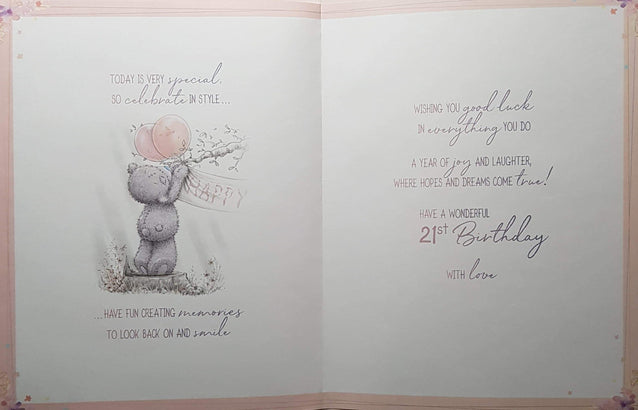 TODAY IS VERY special,
SO celebrate IN STYLE...
HAPPY
...HAVE FUN CREATING memories
TO LOOK BACK ON AND smile
WISHING YOU good luck
IN everything YOU DO
A YEAR OF joy AND LAUGHTER,
WHERE HOPES AND DREAMS COME true!
HAVE A WONDERFUL
21st Birthday
WITH love